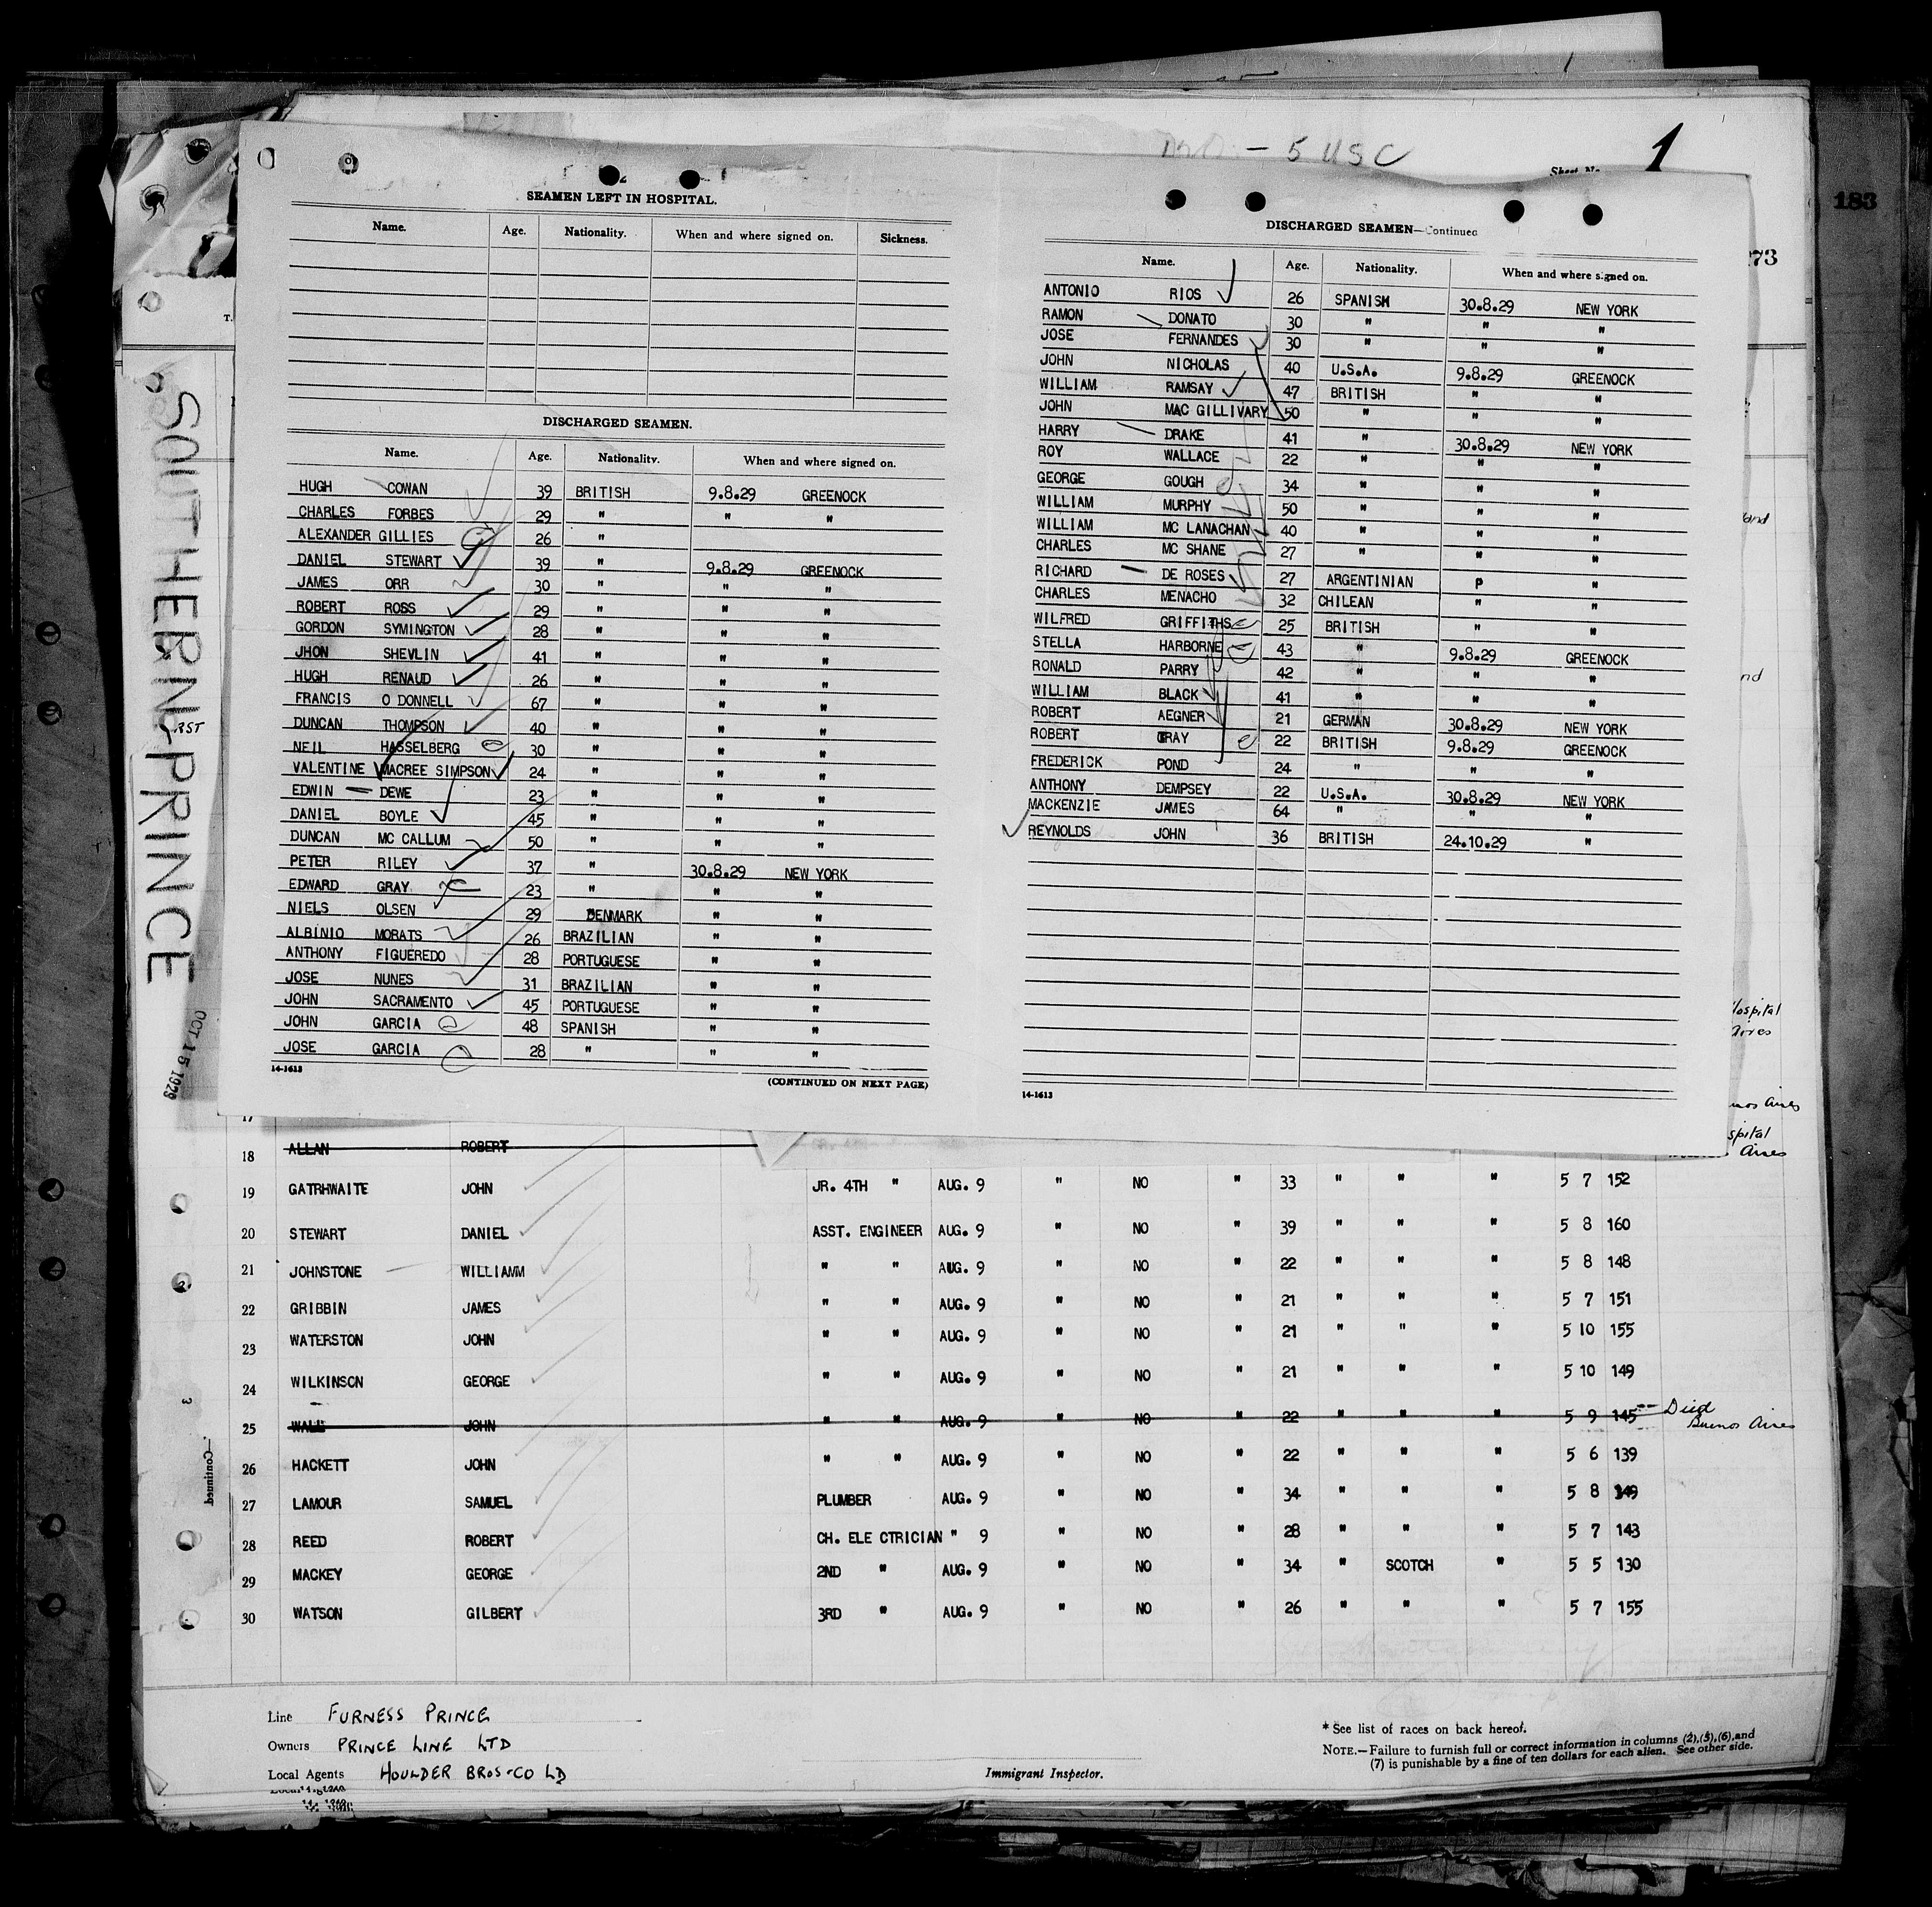 - 5 USC
Sheet No. 1
183
273
SOUTHERN PRINCE
OCT 15 1929
SEAMEN LEFT IN HOSPITAL.
Name. Age. Nationality. When and where signed on. Sickness.
DISCHARGED SEAMEN.
Name. Age. Nationality. When and where signed on.
HUGH COWAN 39 BRITISH 9.8.29 GREENOCK
CHARLES FORBES 29 " " "
ALEXANDER GILLIES 26 "
DANIEL STEWART 39 " 9.8.29 GREENOCK
JAMES ORR 30 " " "
ROBERT ROSS 29 " " "
GORDON SYMINGTON 28 " " "
JHON SHEVLIN 41 " " "
HUGH RENAUD 26 " " "
FRANCIS O DONNELL 67 " " "
DUNCAN THOMPSON 40 " " "
NEIL HASSELBERG 30 " " "
VALENTINE MACREE SIMPSON 24 " " "
EDWIN DEWE 23 " " "
DANIEL BOYLE 45 " " "
DUNCAN MC CALLUM 50 " " "
PETER RILEY 37 " 30.8.29 NEW YORK
EDWARD GRAY 23 " " "
NIELS OLSEN 29 DENMARK " "
ALBINIO MORATS 26 BRAZILIAN " "
ANTHONY FIGUEREDO 28 PORTUGUESE " "
JOSE NUNES 31 BRAZILIAN " "
JOHN SACRAMENTO 45 PORTUGUESE " "
JOHN GARCIA 48 SPANISH " "
JOSE GARCIA 28 " " "
14-1613
(CONTINUED ON NEXT PAGE)
DISCHARGED SEAMEN—Continued
Name. Age. Nationality. When and where signed on.
ANTONIO RIOS 26 SPANISH 30.8.29 NEW YORK
RAMON DONATO 30 " " "
JOSE FERNANDES 30 " " "
JOHN NICHOLAS 40 U.S.A. 9.8.29 GREENOCK
WILLIAM RAMSAY 47 BRITISH " "
JOHN MAC GILLIVARY 50 " " "
HARRY DRAKE 41 " 30.8.29 NEW YORK
ROY WALLACE 22 " " "
GEORGE GOUGH 34 " " "
WILLIAM MURPHY 50 " " "
WILLIAM MC LANACHAN 40 " " "
CHARLES MC SHANE 27 " " "
RICHARD DE ROSES 27 ARGENTINIAN P "
CHARLES MENACHO 32 CHILEAN " "
WILFRED GRIFFITHS 25 BRITISH " "
STELLA HARBORNE 43 " 9.8.29 GREENOCK
RONALD PARRY 42 " " "
WILLIAM BLACK 41 " " "
ROBERT AEGNER 21 GERMAN 30.8.29 NEW YORK
ROBERT GRAY 22 BRITISH 9.8.29 GREENOCK
FREDERICK POND 24 " " "
ANTHONY DEMPSEY 22 U.S.A. 30.8.29 NEW YORK
MACKENZIE JAMES 64 " " "
REYNOLDS JOHN 36 BRITISH 24.10.29 "
14-1613
17
18 ALLAN ROBERT
19 GATRHWAITE JOHN JR. 4TH " AUG. 9 " NO " 33 " " " 5 7 152
20 STEWART DANIEL ASST. ENGINEER AUG. 9 " NO " 39 " " " 5 8 160
21 JOHNSTONE WILLIAMM " " AUG. 9 " NO " 22 " " " 5 8 148
22 GRIBBIN JAMES " " AUG. 9 " NO " 21 " " " 5 7 151
23 WATERSTON JOHN " " AUG. 9 " NO " 21 " " " 5 10 155
24 WILKINSON GEORGE " " AUG. 9 " NO " 21 " " " 5 10 149
25 WALL JOHN " " AUG. 9 " NO " 22 " " " 5 9 145 -- Died
Buenos Aires
26 HACKETT JOHN " " AUG. 9 " NO " 22 " " " 5 6 139
27 LAMOUR SAMUEL PLUMBER AUG. 9 " NO " 34 " " " 5 8 149
28 REED ROBERT CH. ELE CTRICIAN " 9 " NO " 28 " " " 5 7 143
29 MACKEY GEORGE 2ND " AUG. 9 " NO " 34 " SCOTCH " 5 5 130
30 WATSON GILBERT 3RD " AUG. 9 " NO " 26 " " " 5 7 155
3
—Continued
Line FURNESS PRINCE
Owners PRINCE LINE LTD
Local Agents HOULDER BROS & CO LD
Immigrant Inspector.
* See list of races on back hereof.
NOTE.—Failure to furnish full or correct information in columns (2), (5), (6), and
(7) is punishable by a fine of ten dollars for each alien. See other side.